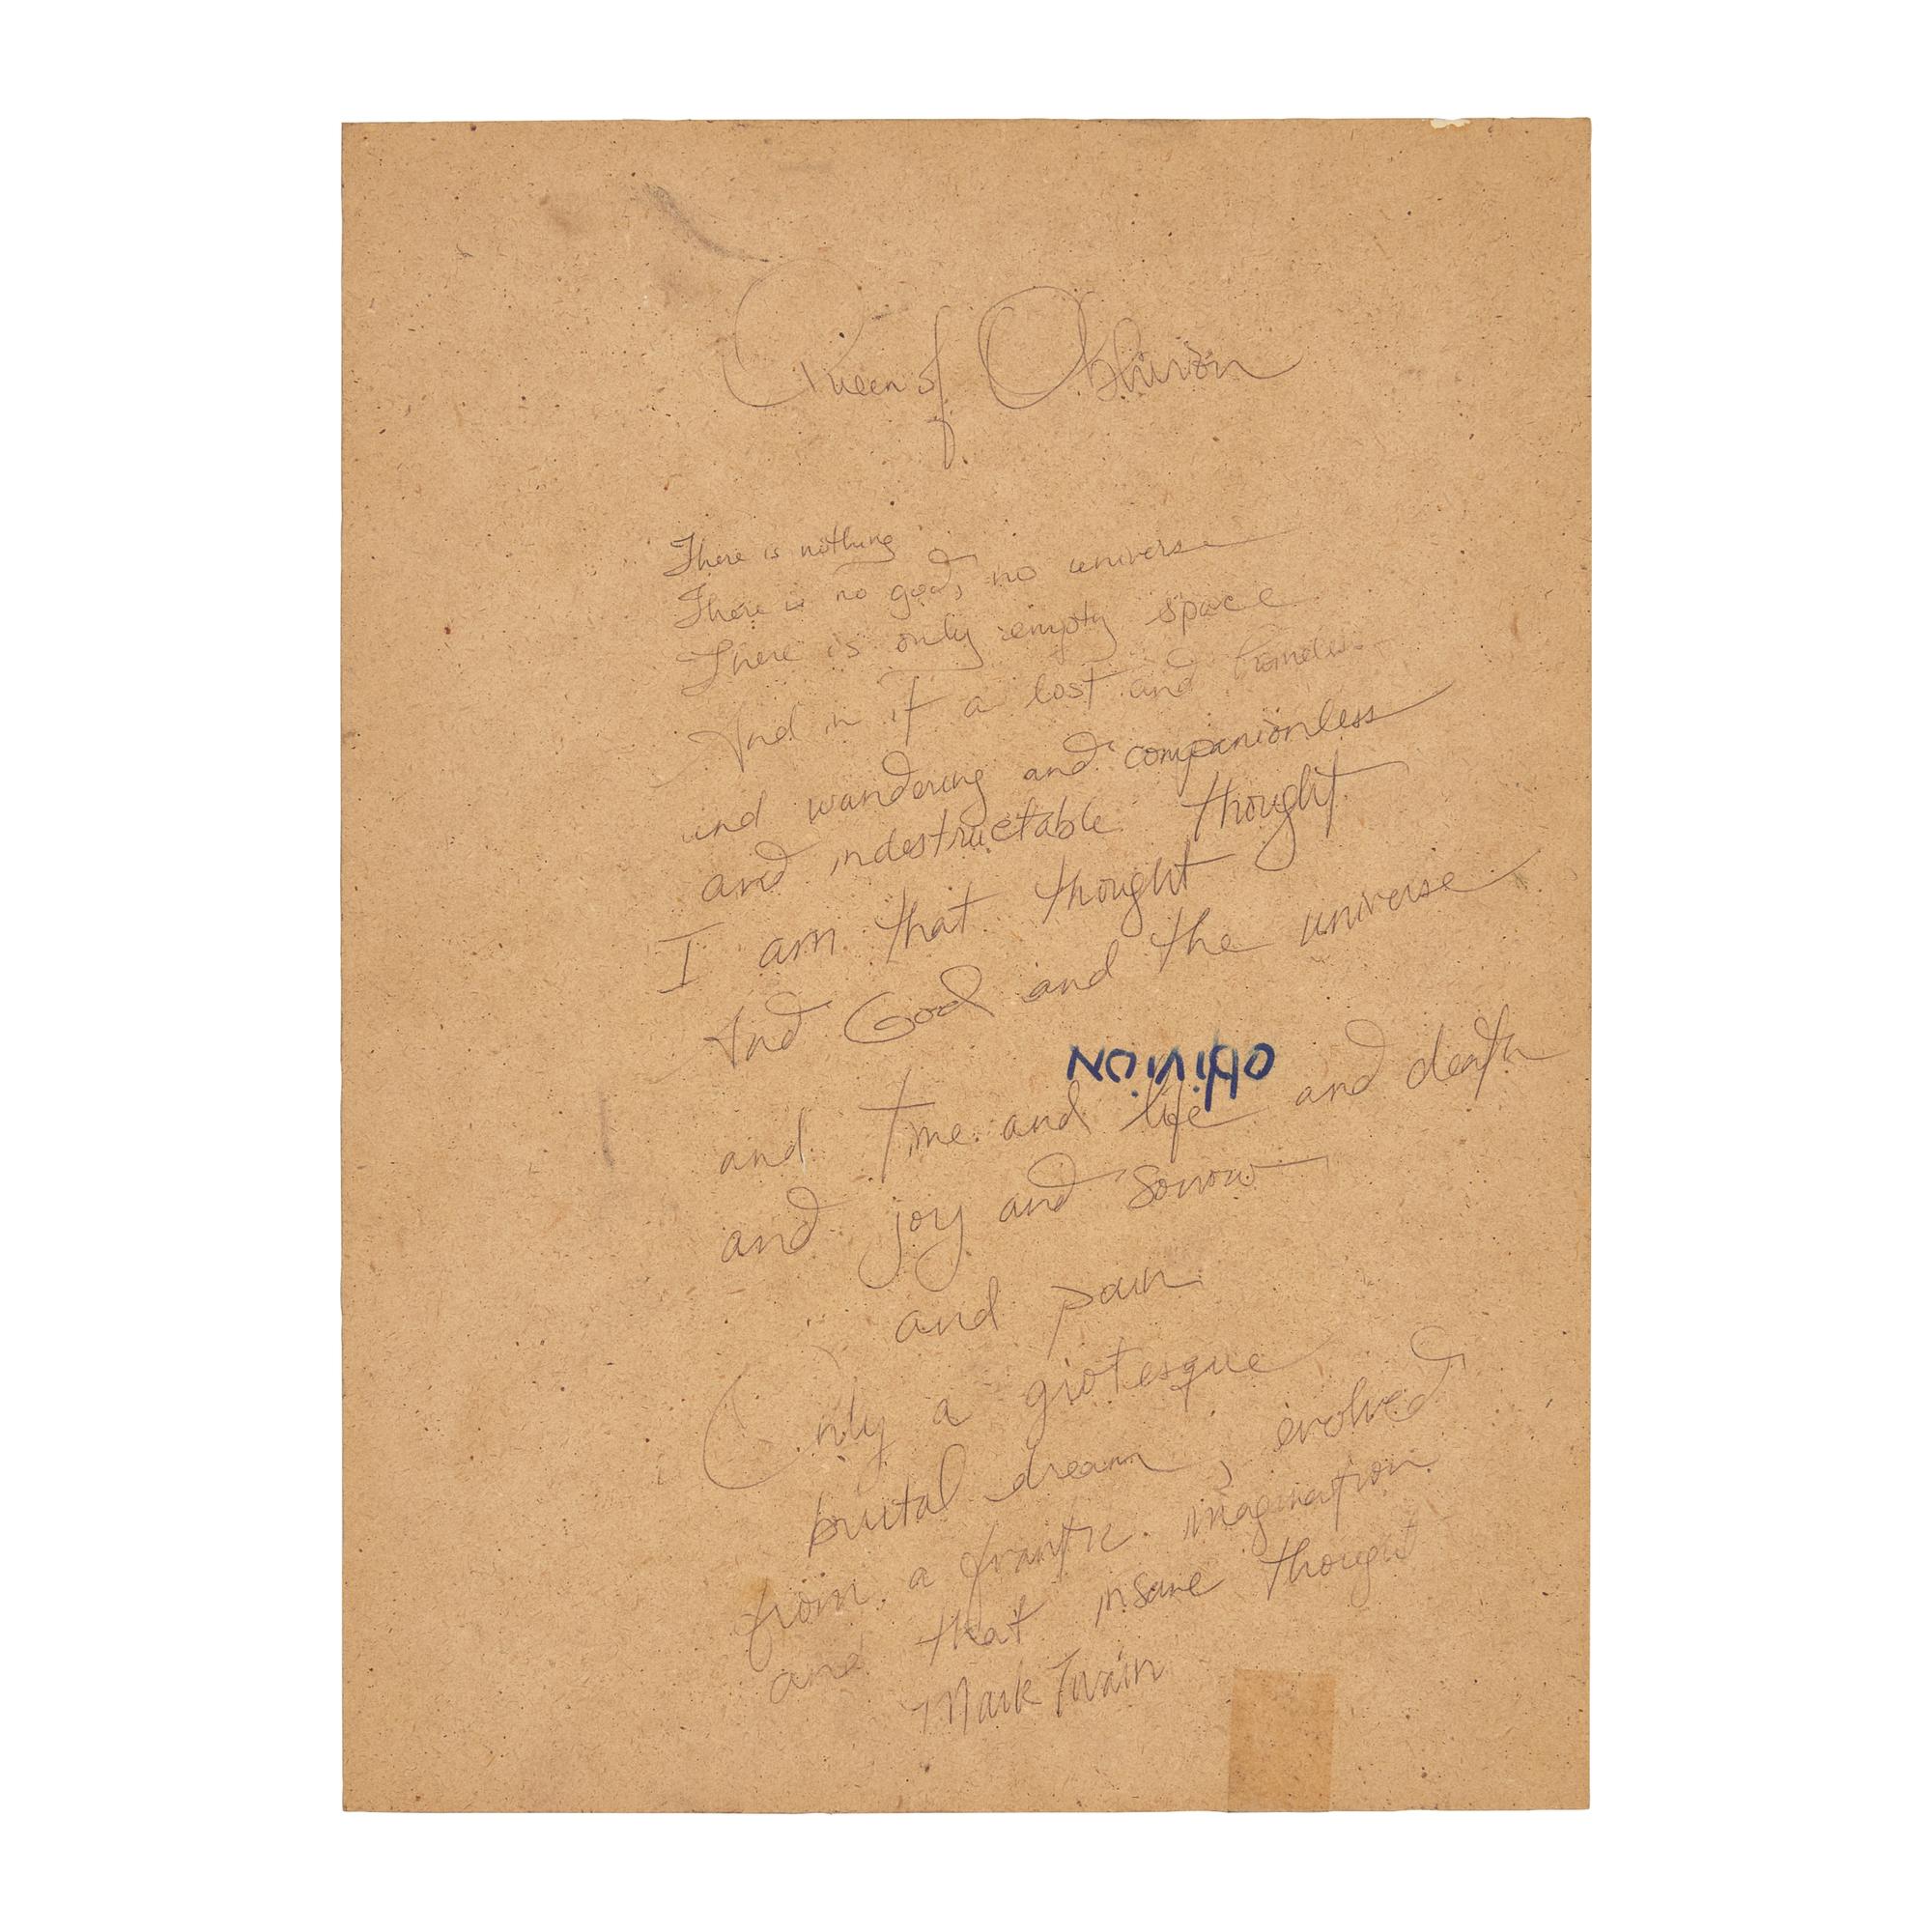 Queen of Oblivion
There is nothing
There is no god, no universe
There is only empty space
And in it a lost and homeless
and wandering and companionless
and indestructable thought
I am that thought
And God and the universe
oblivion
and Time and life and death
and joy and sorrow
and pain
Only a grotesque
brutal dream, evolved
from a frantic imagination
and that insane thought
Mark Twain